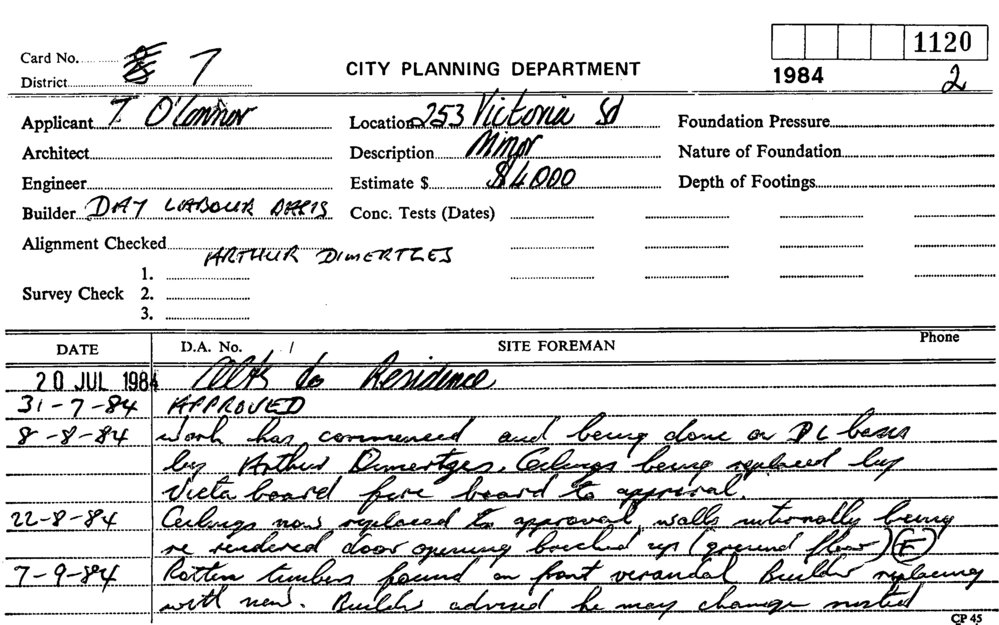 1120
Card No. 7
CITY PLANNING DEPARTMENT
1984
2
District
Applicant T. O'Connor
Location 253 Victoria Sd
Foundation Pressure
Architect
Description Minor
Nature of Foundation
Engineer
Estimate $ $4000
Depth of Footings
Builder DAY LABOUR BASIS
Conc. Tests (Dates)
Alignment Checked
ARTHUR DIMERTZES
1.
Survey Check 2.
3.
DATE
D.A. No. /
SITE FOREMAN
Phone
20 JUL 1984 to Residence
31-7-84 APPROVED
8-8-84 Work has commenced and being done on DL basis
by Arthur Dimertzes. Ceilings being replaced by
Victa board fire board to approval.
22-8-84 Ceilings now replaced to approval, walls internally being
re rendered door opening bricked up (ground floor) F
7-9-84 Rotten timbers found on front verandah Builder replacing
with new. Builder advised he may change
CP 45